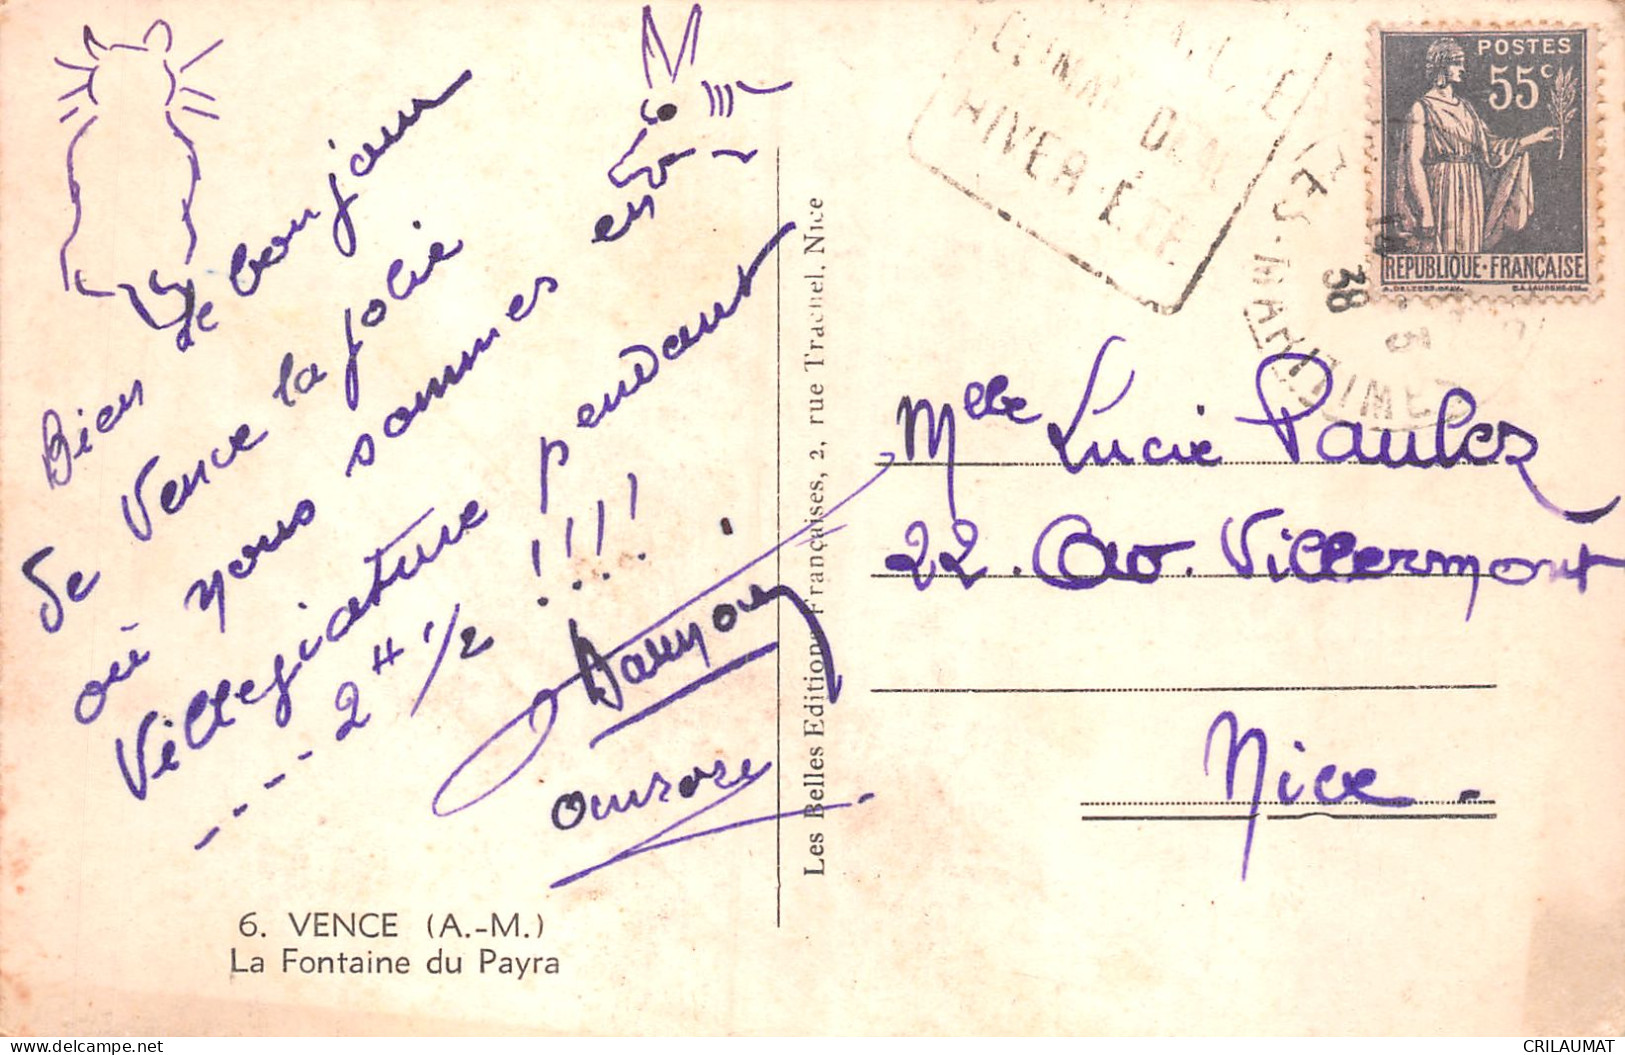 Bien de bonjours
de Vence la jolie
où nous sommes en
Villegiature pendant
---- 2 H 1/2 !!!!
Aurore
6. VENCE (A.-M.)
La Fontaine du Payra
Les Belles Editions Françaises, 2, rue Trachel, Nice
HIVER-ÉTÉ
ALPES-MARITIMES
38
POSTES
55c
REPUBLIQUE·FRANÇAISE
Mlle Lucie Paulez
22. Av. Villermont
Nice.
delcampe.net
CRILAUMAT